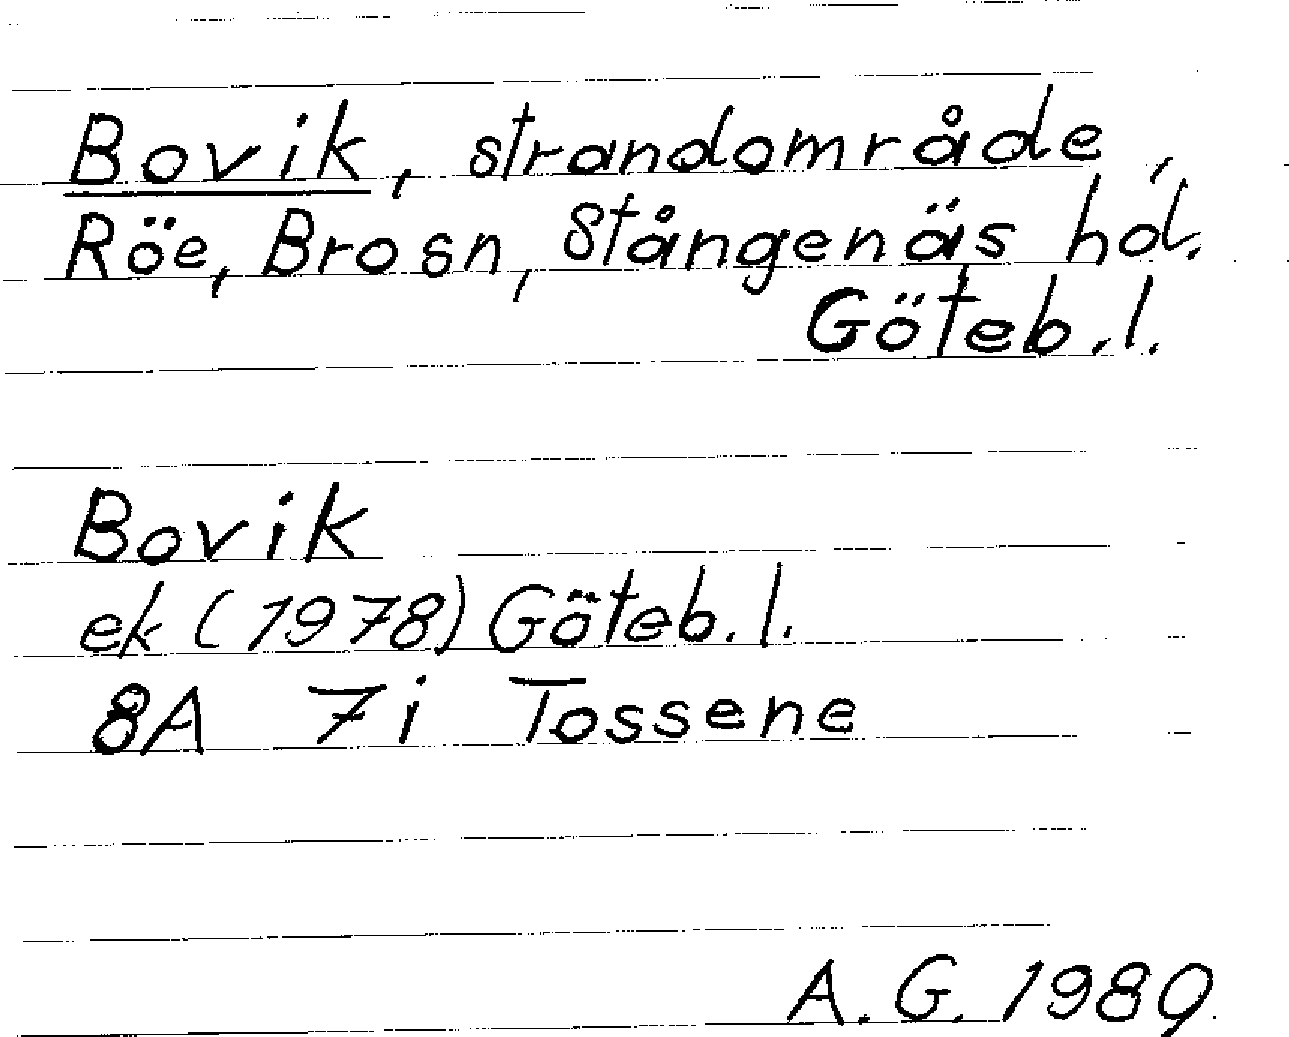 Bovik, strandområde,
Röe, Brosn, Stångenäs hd.
Göteb.l.
Bovik
ek (1978) Göteb.l.
8A 7i Tossene
A.G. 1989